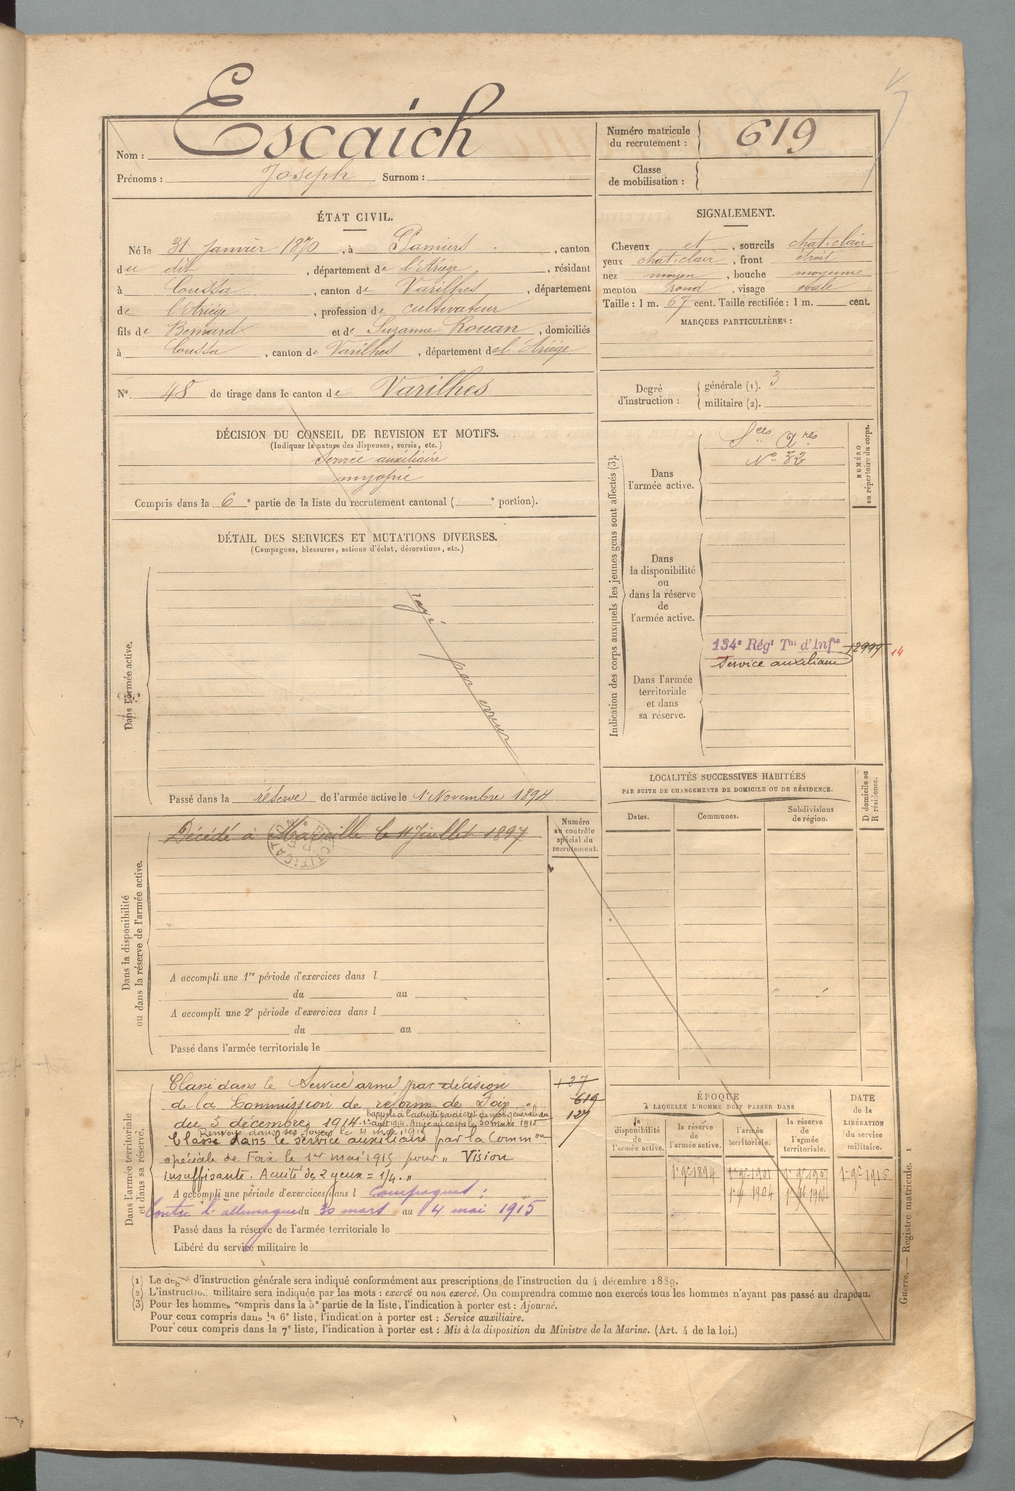 Nom : Escaich
Prénoms : Joseph Surnom :
Numéro matricule du recrutement : 619
Classe de mobilisation :
ÉTAT CIVIL.
Né le 31 Janvier 1870, à Pamiers, canton
du dit, département de l'Ariège, résidant
à Coussa, canton de Varilhes, département
de l'Ariège, profession de cultivateur
fils de Bernard et de Suzanne Rouan, domiciliés
à Coussa, canton de Varilhes, département de l'Ariège
N° 48 de tirage dans le canton de Varilhes
SIGNALEMENT.
Cheveux et, sourcils chat. clair
yeux chat. clair, front étroit
nez moyen, bouche moyenne
menton rond, visage ovale
Taille : 1 m. 67 cent. Taille rectifiée : 1 m. cent.
MARQUES PARTICULIÈRES :
Degré d'instruction : générale (1). 3
militaire (2).
DÉCISION DU CONSEIL DE REVISION ET MOTIFS.
(Indiquer la nature des dispenses, sursis, etc.)
Service auxiliaire
myopie
Compris dans la 6e partie de la liste du recrutement cantonal ( e portion).
DÉTAIL DES SERVICES ET MUTATIONS DIVERSES.
(Campagnes, blessures, actions d'éclat, décorations, etc.)
Dans l'armée active.
rayé par erreur
Passé dans la réserve de l'armée active le 1 Novembre 1894
Indication des corps auxquels les jeunes gens sont affectés (3).
NUMÉRO au répertoire du corps.
Dans l'armée active.
Sces Ares
N° 32
Dans la disponibilité ou dans la réserve de l'armée active.
Dans l'armée territoriale et dans sa réserve.
134e Régt Tal d'Infie
Service auxiliaire
14
LOCALITÉS SUCCESSIVES HABITÉES
PAR SUITE DE CHANGEMENTS DE DOMICILE OU DE RÉSIDENCE.
Dates.
Communes.
Subdivisions de région.
D domicile ou R résidence.
Dans la disponibilité ou dans la réserve de l'armée active.
Numéro au contrôle spécial du recrutement.
Décédé à Marseille le 11 Juillet 1897
A accompli une 1re période d'exercices dans l
du au
A accompli une 2e période d'exercices dans l
du au
Passé dans l'armée territoriale le
Dans l'armée territoriale et dans sa réserve.
Classé dans le Service armé par décision
de la Commission de réforme de Foix
du 3 décembre 1914.
Classé dans le service auxiliaire par la Common
spéciale de Foix le 1er mai 1915 pour " Vision
insuffisante. Acuité des 2 yeux = 1/4. "
A accompli une période d'exercices dans l Campagnes :
Contre l'allemagne du 30 mars au 4 mai 1915
Passé dans la réserve de l'armée territoriale le
Libéré du service militaire le
137
619
127
ÉPOQUE
A LAQUELLE L'HOMME DOIT PASSER DANS
la disponibilité de l'armée active.
la réserve de l'armée active.
l'armée territoriale.
la réserve de l'armée territoriale.
DATE de la LIBÉRATION du service militaire.
1 9e 1894
1 9e 1904
1 9e 1916
Guerre. — Registre matricule. 1
(1) Le degré d'instruction générale sera indiqué conformément aux prescriptions de l'instruction du 4 décembre 1889.
(2) L'instruction militaire sera indiquée par les mots : exercé ou non exercé. On comprendra comme non exercés tous les hommes n'ayant pas passé au drapeau.
(3) Pour les hommes compris dans la 5e partie de la liste, l'indication à porter est : Ajourné.
Pour ceux compris dans la 6e liste, l'indication à porter est : Service auxiliaire.
Pour ceux compris dans la 7e liste, l'indication à porter est : Mis à la disposition du Ministre de la Marine. (Art. 4 de la loi.)